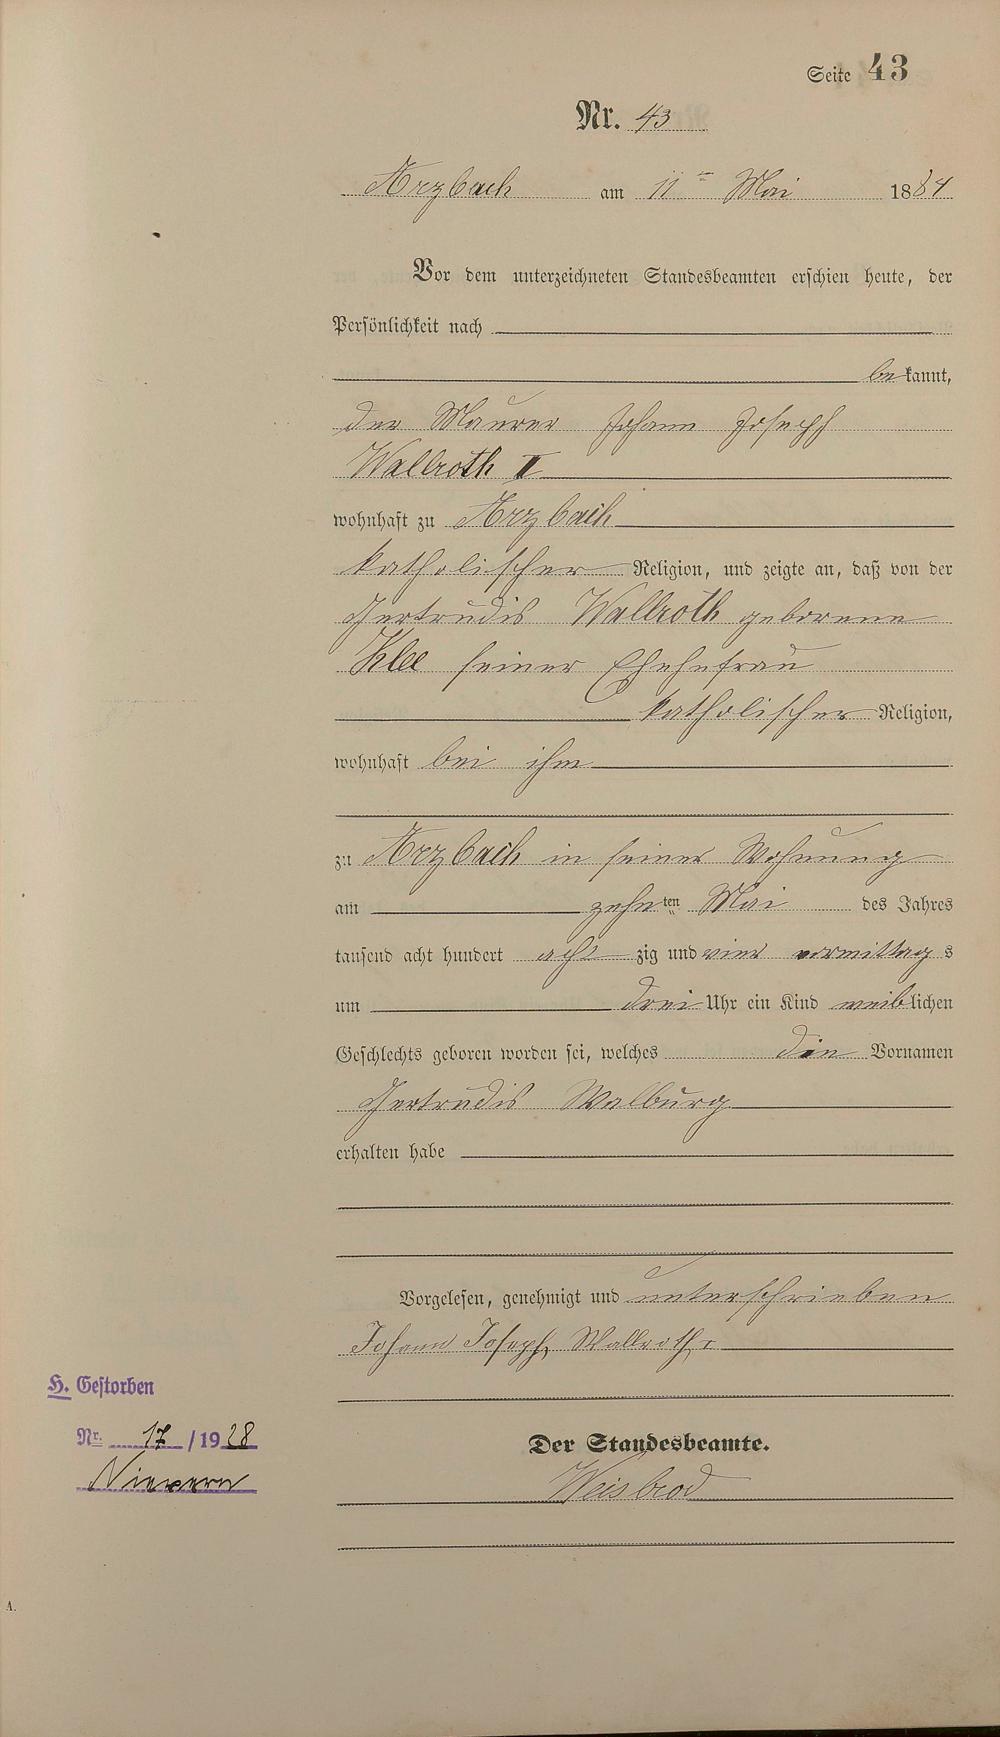 Seite 43
Nr. 43
Arzbach am 11ten Mai 1884
Vor dem unterzeichneten Standesbeamten erschien heute, der
Persönlichkeit nach
bekannt,
der Maurer Johann Joseph
Wallroth II
wohnhaft zu Arzbach
katholischer Religion, und zeigte an, daß von der
Gertrudis Wallroth geborene
Klee seiner Ehehefrau
katholischer Religion,
wohnhaft bei ihm
zu Arzbach in seiner Wohnung
am zehnten Mai des Jahres
tausend acht hundert achtzig und vier vormittags
um drei Uhr ein Kind weiblichen
Geschlechts geboren worden sei, welches die Vornamen
Gertrudis Walburg
erhalten habe
Vorgelesen, genehmigt und unterschrieben
Johann Joseph Wallroth
H. Gestorben
Nr. 17/1928
Nievern
Der Standesbeamte.
Weisbrod
A.